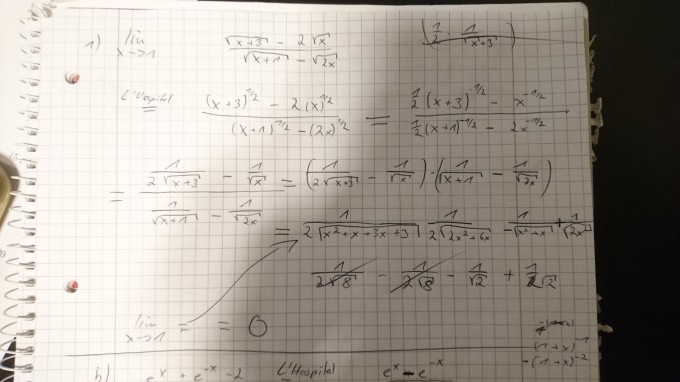 1) lim x->1 (√(x+3) - 2√x)/(√(x+1) - √(2x)) (1/2 · 1/√(x+3))
L'Hospital ((x+3)^1/2 - 2(x)^1/2)/((x+1)^1/2 - (2x)^1/2) = (1/2(x+3)^-1/2 - x^-1/2)/(1/2(x+1)^-1/2 - 2x^-1/2)
= (1/(2√(x+3)) - 1/√x)/(1/√(x+1) - 1/√(2x)) = (1/(2√(x+3)) - 1/√x) · (1/√(x+1) - 1/√(2x))
= 1/(2√(x²+x+3x+3)) 1/(2√(2x²+6x)) - 1/√(x²+x) + 1/√(2x²)
1/(2√8) - 1/(2√8) - 1/√2 + 1/√2
lim x->1 = = 0
(1+x)^-1
-(1+x)^-2
b) e^x + e^-x - 2 L'Hospital e^x - e^-x